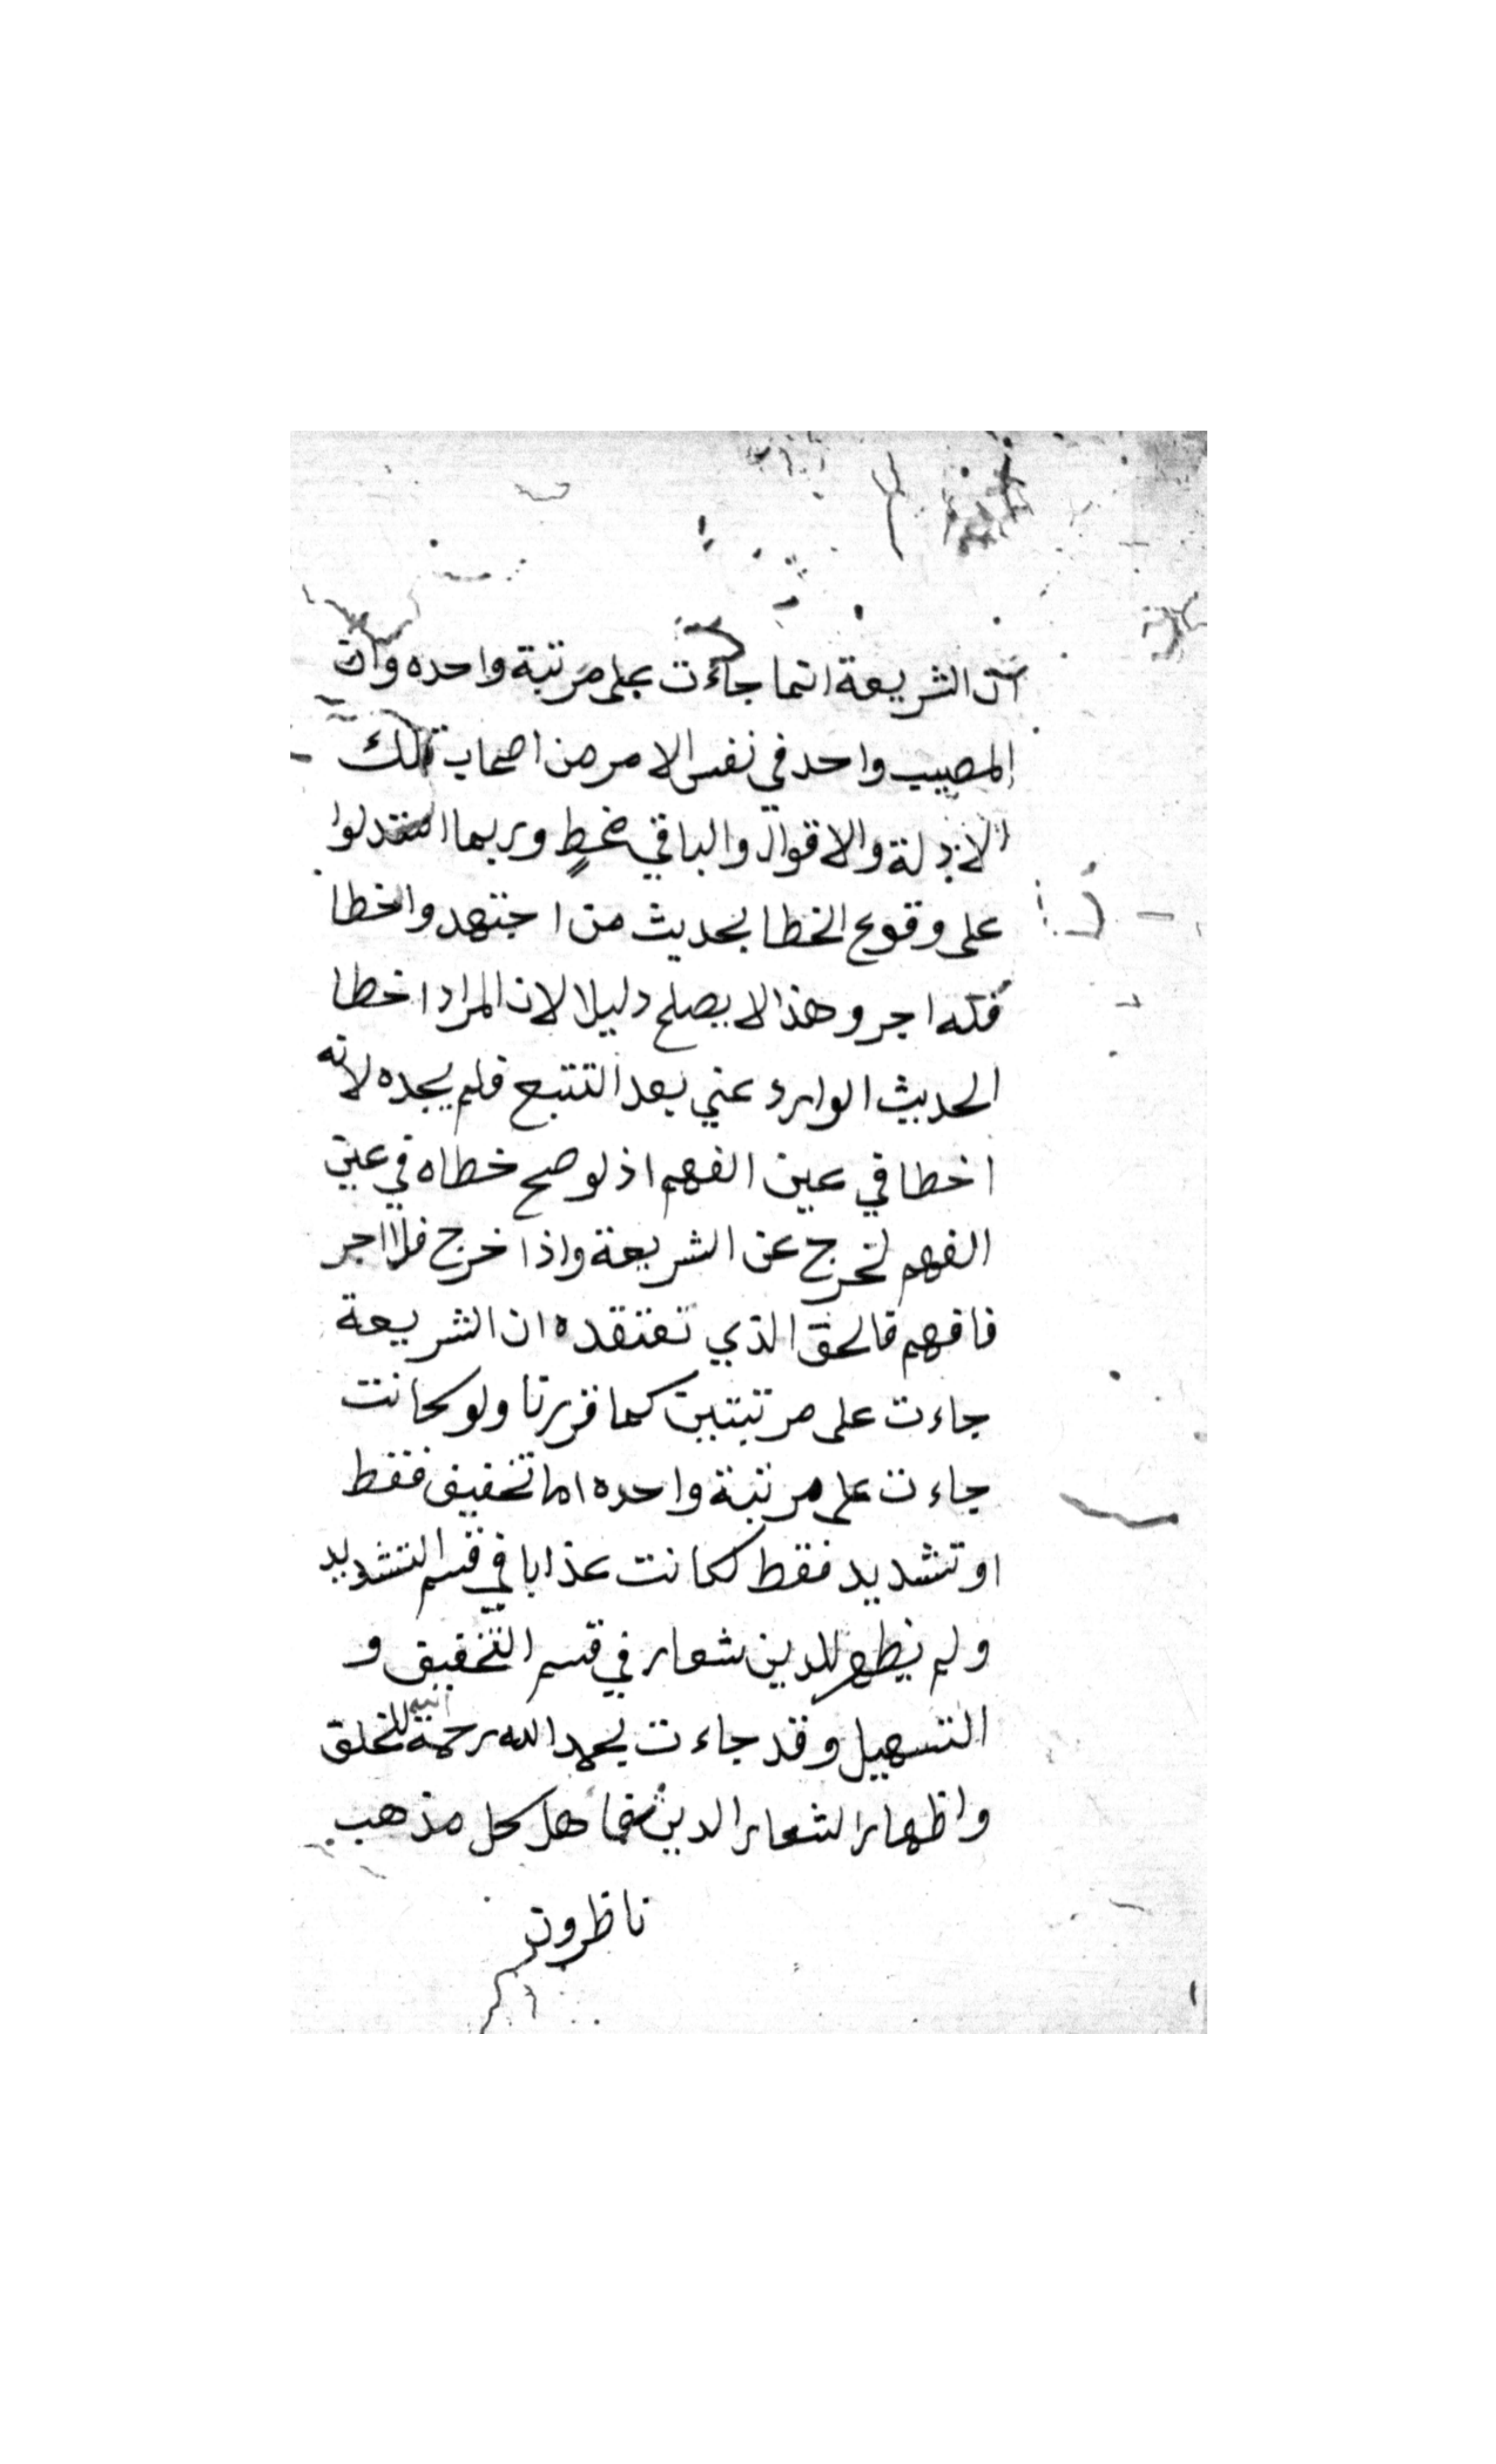 ان الشريعة انما جاءت على مرتبة واحده وان
المصيب واحد في نفس الامر من اصحاب تلك
الادلة والاقوال والباقي مخطٍ وربما استدلوا
على وقوع الخطا بحديث من اجتهد واخطا
فله اجر وهذا لا يصلح دليلا لان المراد اخطا
الحديث الوارد عني بعد التتبع فلم يجده لانه
اخطا في عين الفهم اذ لو صح خطاه في عين
الفهم لخرج عن الشريعة واذا خرج فلا اجر
فافهم فالحق الذي نعتقده ان الشريعة
جاءت على مرتبتين كما قررنا ولو كانت
جاءت على مرتبة واحده اما تخفيف فقط
او تشديد فقط لكانت عذابا في قسم التشديد
ولم يظهر للدين شعار في قسم التخفيف و
التسهيل وقد جاءت بحمد الله رحمة للخلق
واظهارا لشعار الدين فما هل كل مذهب
ناظرون